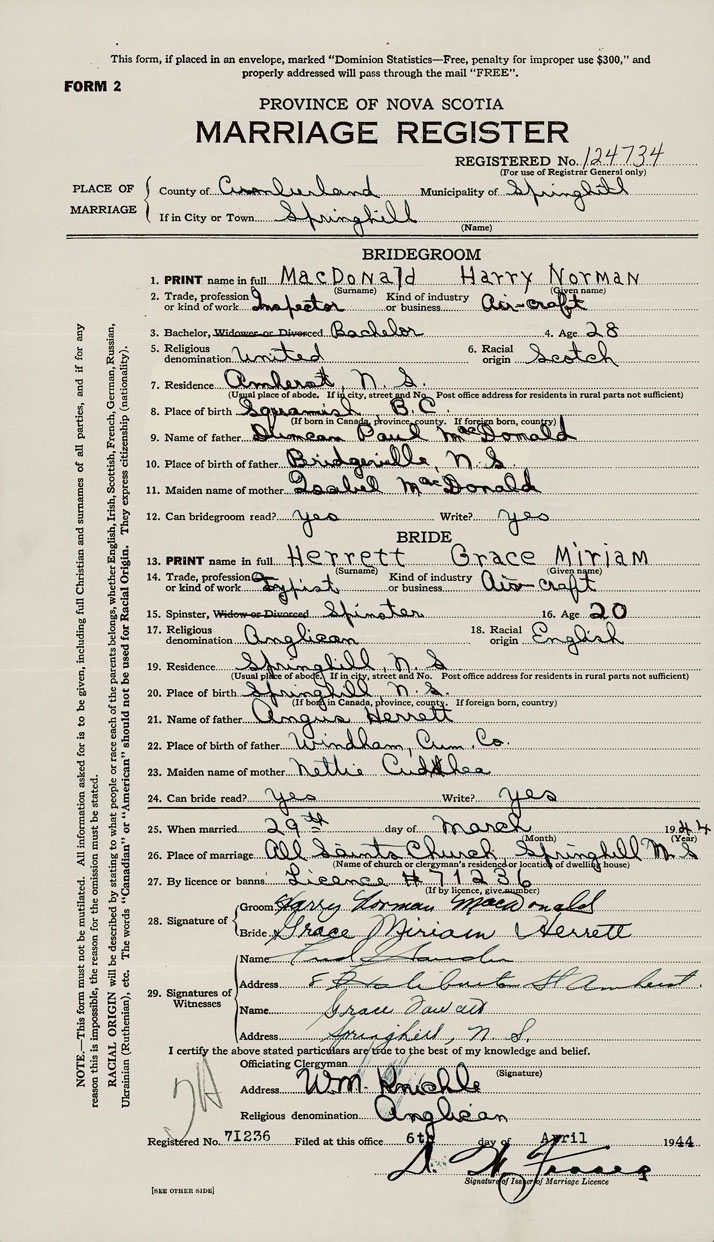 This form, if placed in an envelope, marked "Dominion Statistics—Free, penalty for improper use $300," and
properly addressed will pass through the mail "FREE".
FORM 2
PROVINCE OF NOVA SCOTIA
MARRIAGE REGISTER
REGISTERED No. 124734
(For use of Registrar General only)
PLACE OF MARRIAGE
County of Cumberland Municipality of Springhill
If in City or Town Springhill
(Name)
BRIDEGROOM
1. PRINT name in full MacDonald Harry Norman
(Surname) (Given name)
2. Trade, profession or kind of work Inspector Kind of industry or business Air-craft
3. Bachelor, Widower or Divorced Bachelor 4. Age 28
5. Religious denomination United 6. Racial origin Scotch
7. Residence Amherst, N. S.
(Usual place of abode. If in city, street and No. Post office address for residents in rural parts not sufficient)
8. Place of birth Squamish, B.C.
(If born in Canada, province, county. If foreign born, country)
9. Name of father Duncan Paul MacDonald
10. Place of birth of father Bridgeville, N. S.
11. Maiden name of mother Isabel MacDonald
12. Can bridegroom read? yes Write? yes
BRIDE
13. PRINT name in full Herrett Grace Miriam
(Surname) (Given name)
14. Trade, profession or kind of work Typist Kind of industry or business Air-craft
15. Spinster, Widow or Divorced Spinster 16. Age 20
17. Religious denomination Anglican 18. Racial origin English
19. Residence Springhill, N. S
(Usual place of abode. If in city, street and No. Post office address for residents in rural parts not sufficient)
20. Place of birth Springhill, N. S.
(If born in Canada, province, county. If foreign born, country)
21. Name of father Angus Herrett
22. Place of birth of father Windham, Cum. Co.
23. Maiden name of mother Nettie
24. Can bride read? yes Write? yes
25. When married 29th day of March 1944
(Month) (Year)
26. Place of marriage All Saints Church, Springhill N. S
(Name of church or clergyman's residence or location of dwelling house)
27. By licence or banns Licence # 71236
(If by licence, give number)
28. Signature of
Groom Harry Norman MacDonald
Bride Grace Miriam Herrett
29. Signatures of Witnesses
Name
Address 8 St Amherst.
Name Grace
Address Springhill, N. S.
I certify the above stated particulars are true to the best of my knowledge and belief.
Officiating Clergyman
(Signature)
Address Wm. Knickle
Religious denomination Anglican
Registered No. 71236 Filed at this office 6th day of April 1944
Signature of Issuer of Marriage Licence
[SEE OTHER SIDE]
NOTE.—This form must not be mutilated. All information asked for is to be given, including full Christian and surnames of all parties, and if for any
reason this is impossible, the reason for the omission must be stated.
RACIAL ORIGIN will be described by stating to what people or race each of the parents belongs, whether English, Irish, Scottish, French, German, Russian,
Ukrainian (Ruthenian), etc. The words "Canadian" or "American" should not be used for Racial Origin. They express citizenship (nationality).